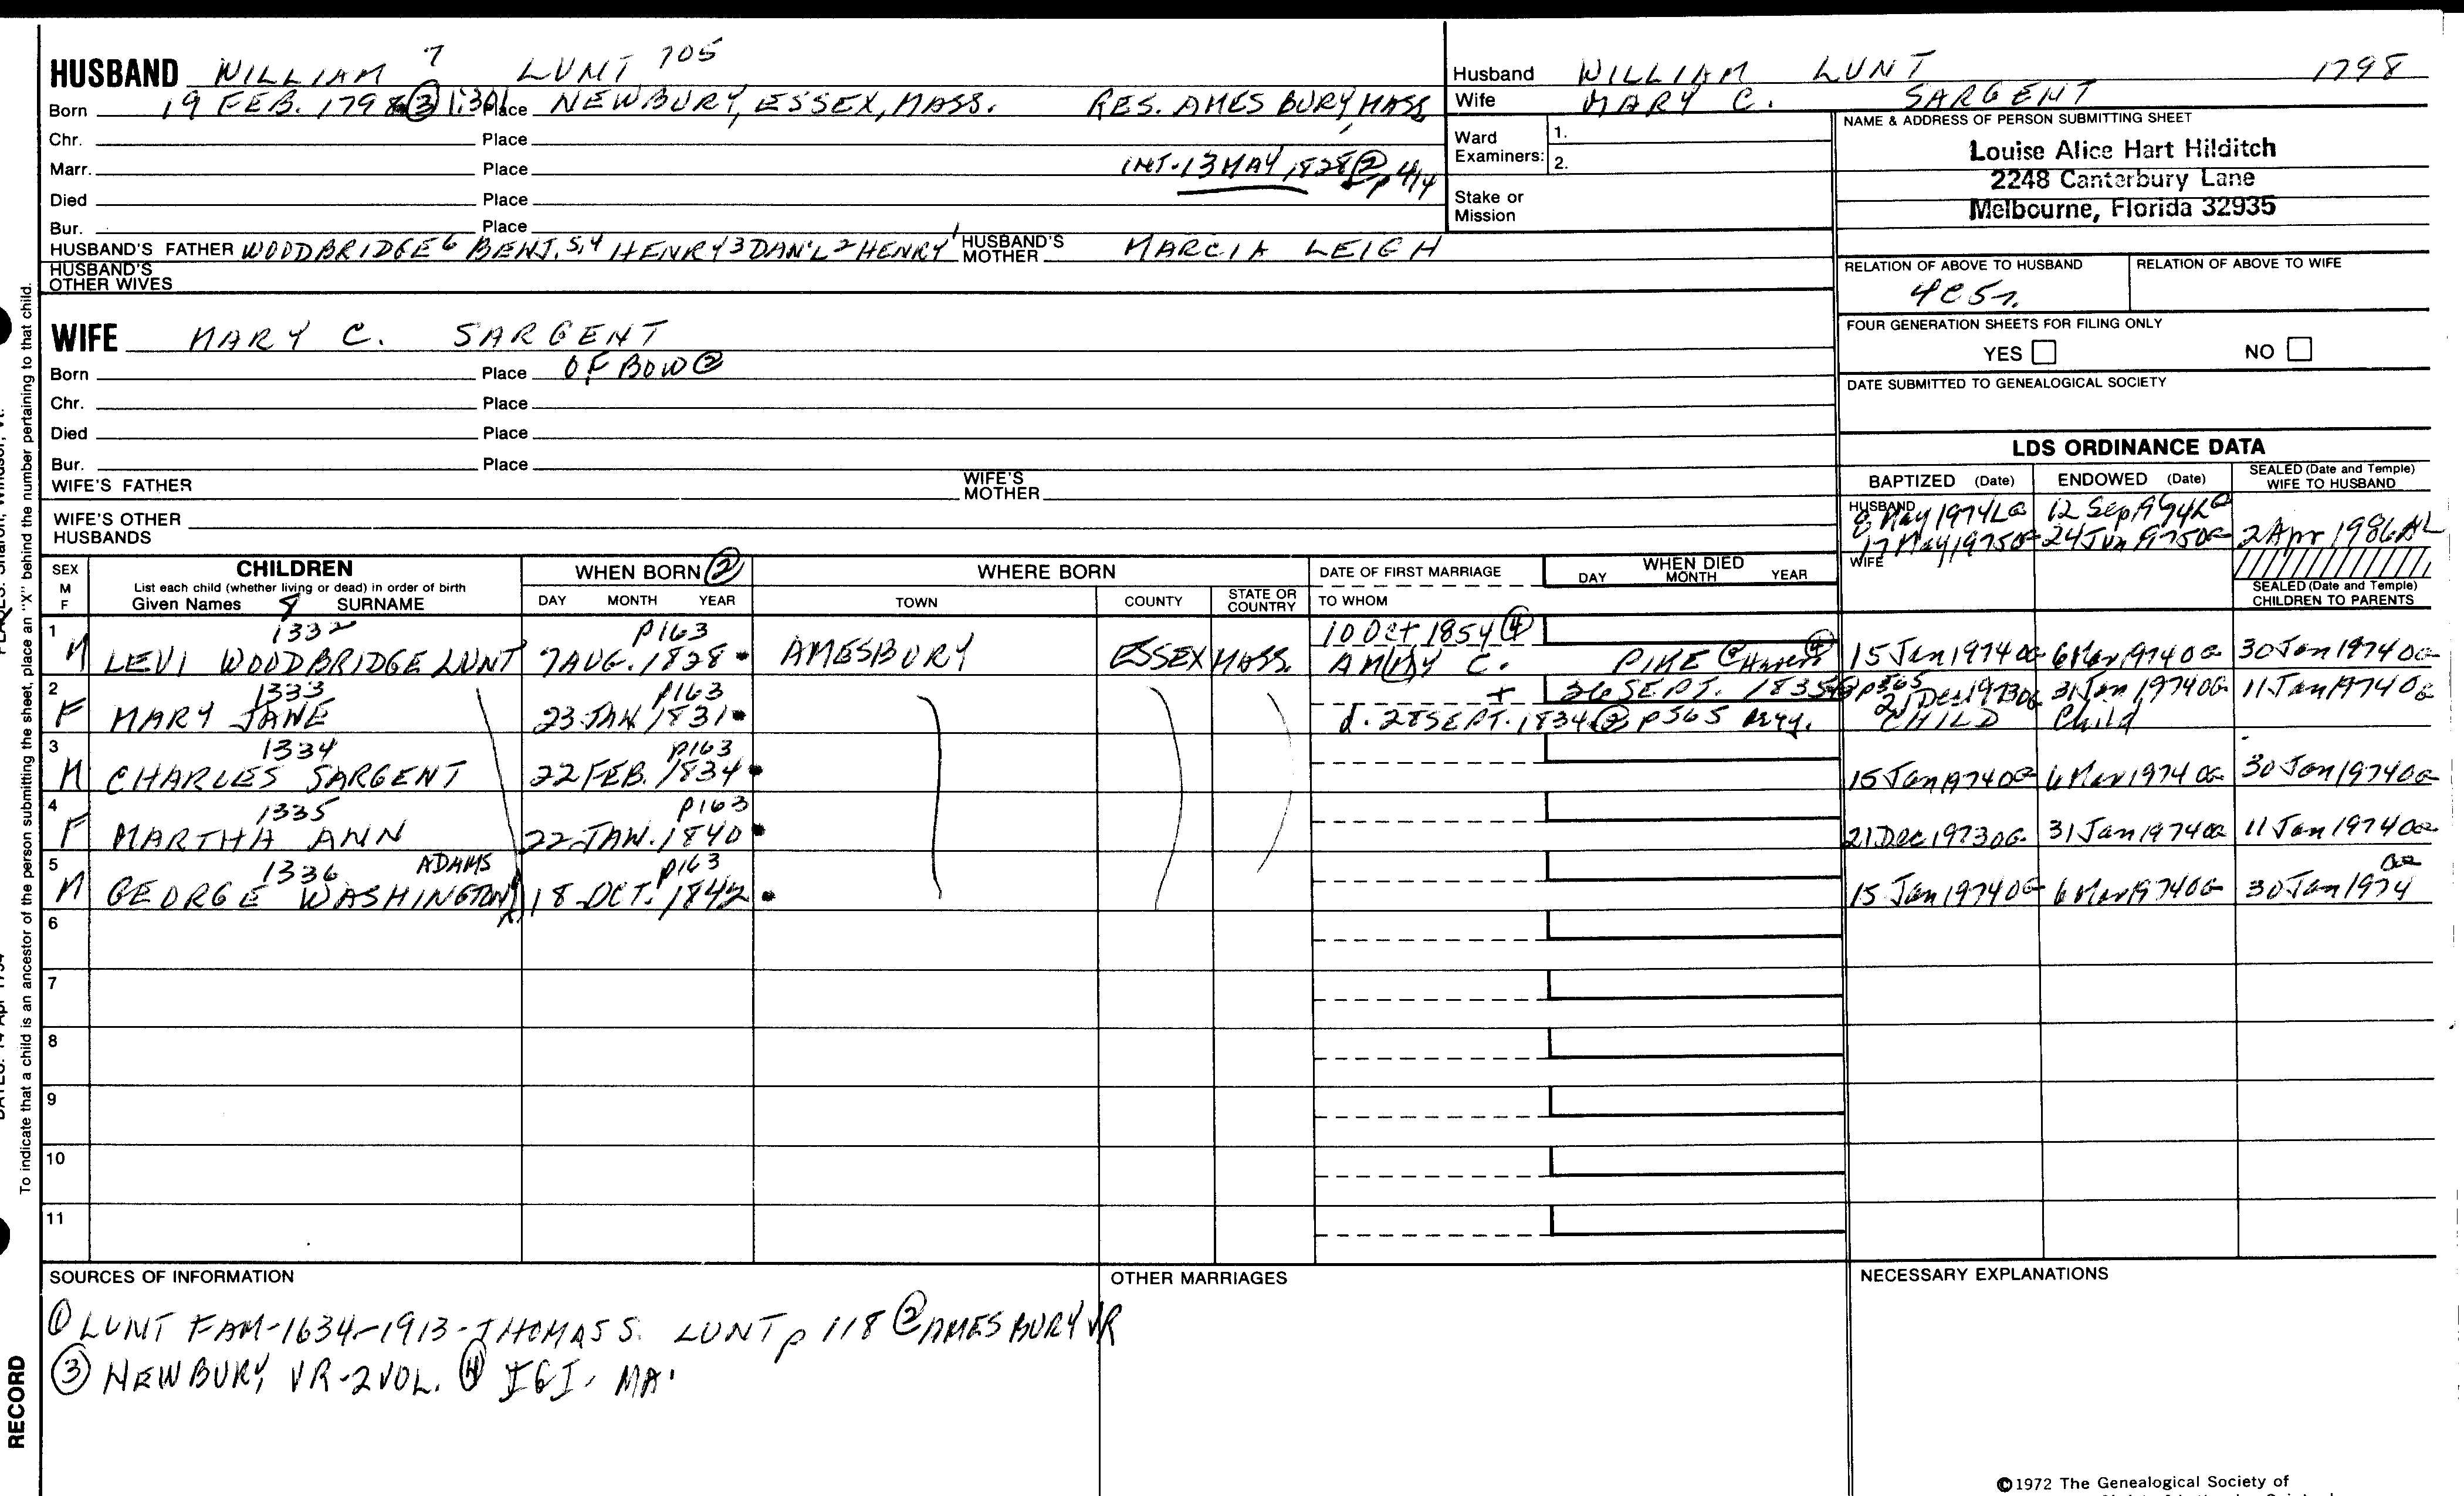 HUSBAND WILLIAM 7 LUNT 705
Born 19 FEB. 1798 ③ 1:301 Place NEWBURY, ESSEX, MASS. RES. AMESBURY, MASS
Chr. Place
Marr. Place INT-13 MAY 1828 ② p 414
Died Place
Bur. Place
HUSBAND'S FATHER WOODBRIDGE 6 BENJ. 5,4 HENRY 3 DAN'L 2 HENRY 1 HUSBAND'S MOTHER MARCIA LEIGH
HUSBAND'S OTHER WIVES
WIFE MARY C. SARGENT
Born Place OF BOW ②
Chr. Place
Died Place
Bur. Place
WIFE'S FATHER WIFE'S MOTHER
WIFE'S OTHER HUSBANDS
Husband WILLIAM LUNT 1798
Wife MARY C. SARGENT
Ward Examiners: 1.
2.
Stake or Mission
NAME & ADDRESS OF PERSON SUBMITTING SHEET
Louise Alice Hart Hilditch
2248 Canterbury Lane
Melbourne, Florida 32935
RELATION OF ABOVE TO HUSBAND RELATION OF ABOVE TO WIFE
4C5r.
FOUR GENERATION SHEETS FOR FILING ONLY
YES NO
DATE SUBMITTED TO GENEALOGICAL SOCIETY
LDS ORDINANCE DATA
BAPTIZED (Date) ENDOWED (Date) SEALED (Date and Temple) WIFE TO HUSBAND
HUSBAND 8 May 1974 LG 12 Sep 1974 LG
WIFE 17 May 1975 OG 24 Jun 1975 OG 2 Apr 1986 AL
SEALED (Date and Temple) CHILDREN TO PARENTS
SEX M F CHILDREN WHEN BORN ② WHERE BORN DATE OF FIRST MARRIAGE WHEN DIED
List each child (whether living or dead) in order of birth
Given Names 8 SURNAME DAY MONTH YEAR TOWN COUNTY STATE OR COUNTRY TO WHOM DAY MONTH YEAR
1 1332 P163 10 Oct 1854 ④
M LEVI WOODBRIDGE LUNT 7 AUG. 1828 AMESBURY ESSEX MASS. C. PIKE ④ 15 Jan 1974 OG 6 Mar 1974 OG 30 Jan 1974 OG
2 1333 P163 + 26 SEPT. 1835 ② p565 21 Dec 1973 OG 31 Jan 1974 OG 11 Jan 1974 OG
F MARY JANE 23 JAN 1831 d. 28 SEPT. 1834 ② p565 CHILD Child
3 1334 P163
M CHARLES SARGENT 22 FEB. 1834 15 Jan 1974 OG 6 Mar 1974 OG 30 Jan 1974 OG
4 1335 P163
F MARTHA ANN 22 JAN. 1840 21 Dec 1973 OG 31 Jan 1974 OG 11 Jan 1974 OG
5 1336 ADAMS P163 OG
M GEORGE WASHINGTON 18 OCT. 1842 15 Jan 1974 OG 6 Mar 1974 OG 30 Jan 1974
6
7
8
9
10
11
SOURCES OF INFORMATION OTHER MARRIAGES NECESSARY EXPLANATIONS
① LUNT FAM-1634-1913-THOMAS S. LUNT p 118 ② AMESBURY VR
③ NEWBURY VR-2VOL. ④ IGI, MA.
©1972 The Genealogical Society of
To indicate that a child is an ancestor of the person submitting the sheet, place an "X" behind the number pertaining to that child.
Sharon, Windsor, Vt.
DATES: 14 Apr 1794
RECORD